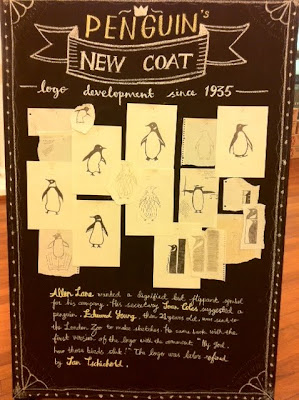 PENGUIN's
NEW COAT
logo development since 1935
Allen Lane wanted a dignified but flippant symbol
for his company. His secretary Joan Coles suggested a
penguin. Edward Young, then 21 years old, was sent to
the London Zoo to make sketches. He came back with the
first version of the logo with the comment "My God,
how those birds stink!" The logo was later refined
by Jan Tschichold.